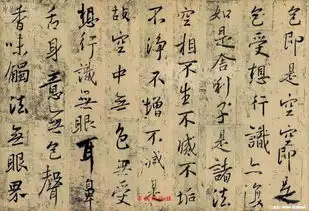 色即是空空即是
色受想行識亦復
如是舍利子是諸法
空相不生不滅不垢
不淨不增不減是
故空中無色无受
想行識無眼耳鼻
舌身意无色聲
香味觸法無眼界